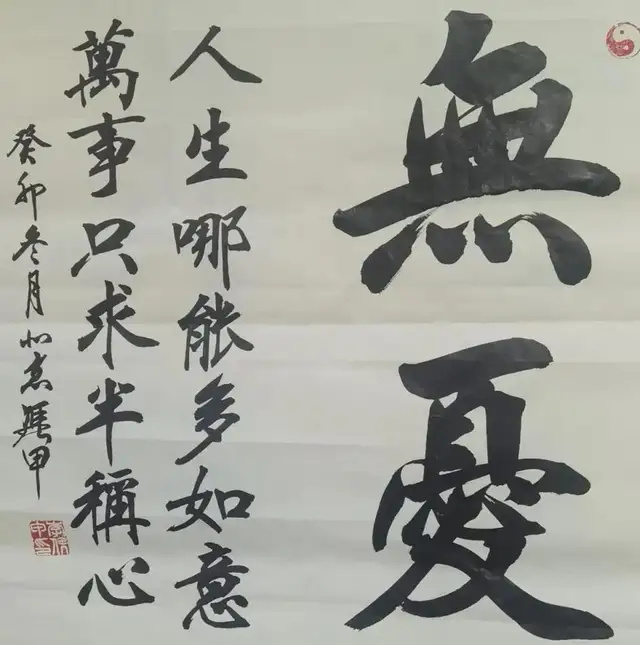 無憂
人生哪能多如意
萬事只求半稱心
癸卯冬月